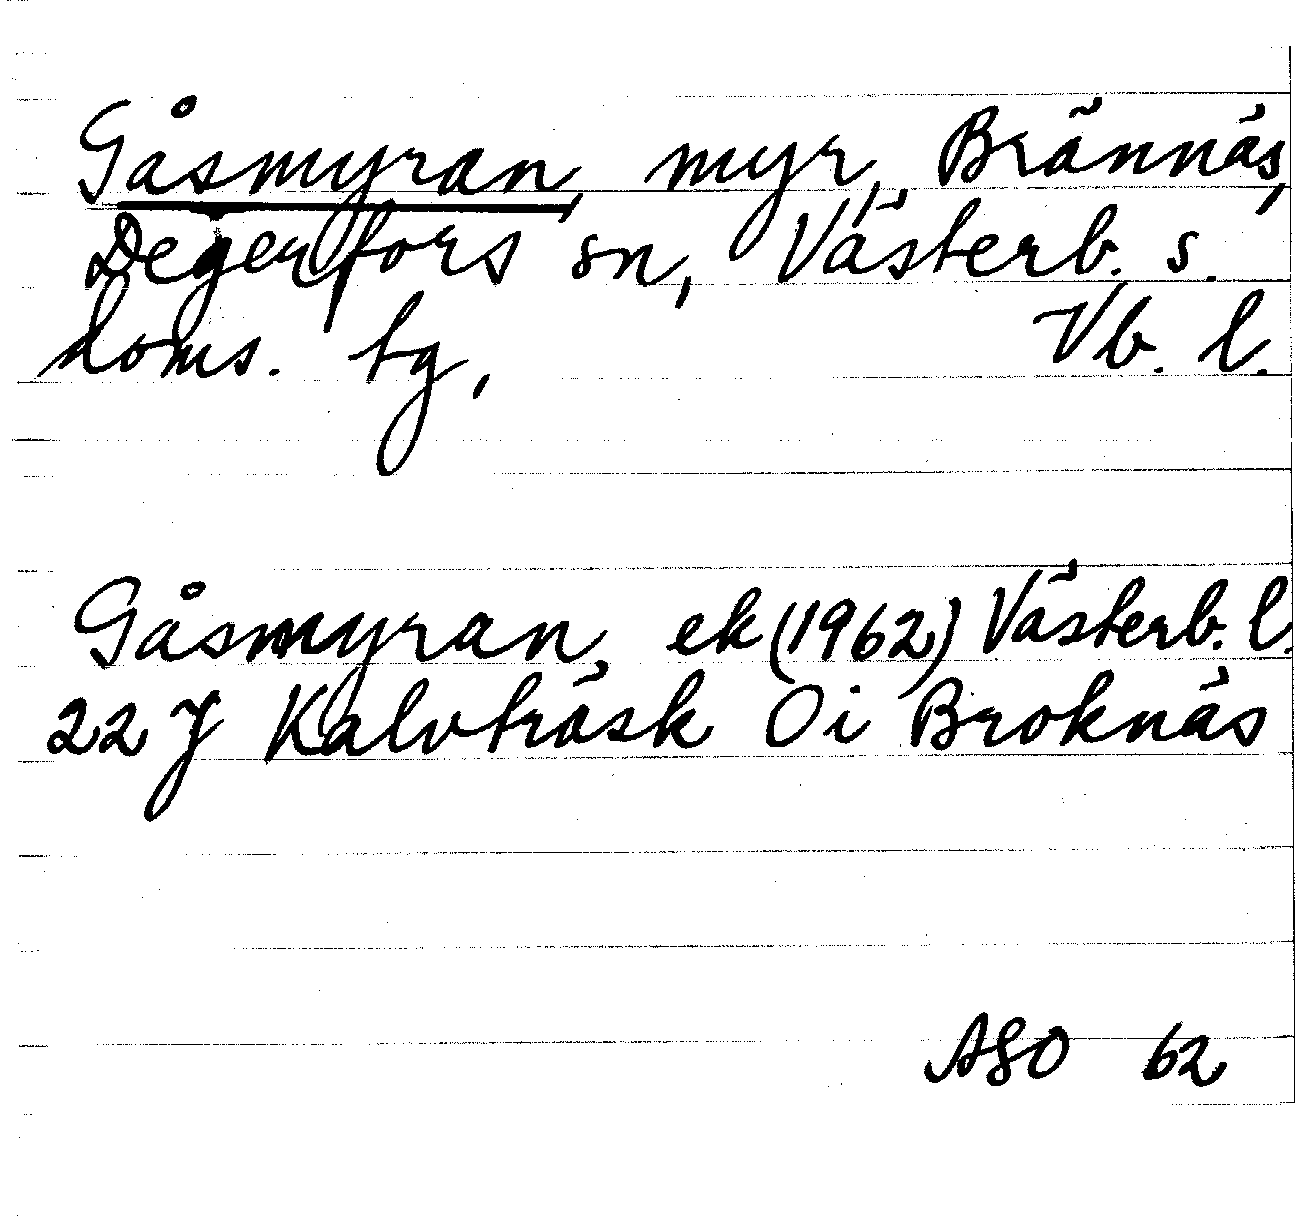 Gåsmyran, myr, Brännäs,
Degerfors sn, Västerb. s.
doms. tg, Vb. l.
Gåsmyran, ek (1962) Västerb. l.
22 J Kalvträsk Oi Broknäs
ASO 62